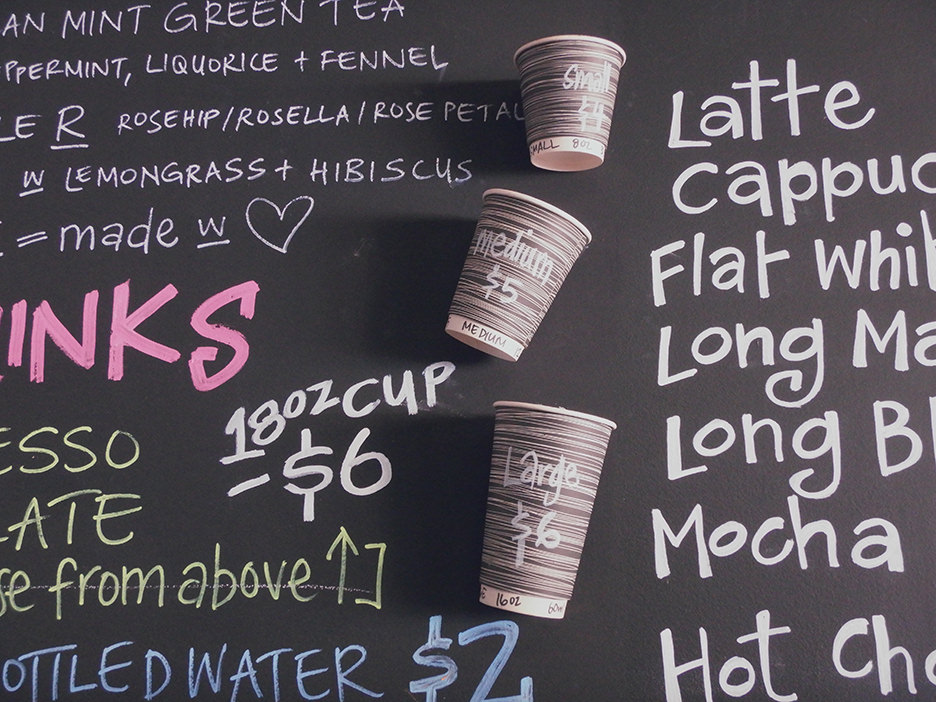 AN MINT GREEN TEA
PPERMINT, LIQUORICE + FENNEL
LE R ROSEHIP/ROSELLA/ROSE PETAL
w LEMONGRASS + HIBISCUS
= made w ♡
INKS
18oz CUP
- $6
ESSO
LATE
se from above ↑]
OTTLED WATER $2
Small
$4
SMALL 8oz
Medium
$5
MEDIUM
Large
$6
16oz
Latte
Cappuc
Flat Whit
Long Ma
Long Bl
Mocha
Hot Cho